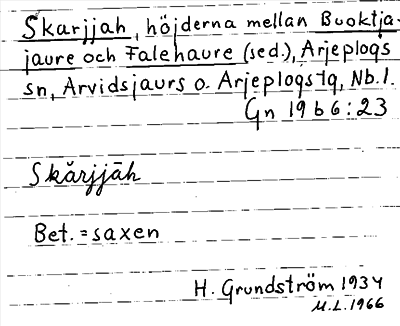 Skarjjah, höjderna mellan Buoktja-
jaure och Falehaure (sed.), Arjeplogs
sn, Arvidsjaurs o. Arjeplogs tg, Nb.l.
Gn 19 b 6:23
Skărjjāh
Bet. = saxen
H. Grundström 1934
M.L. 1966